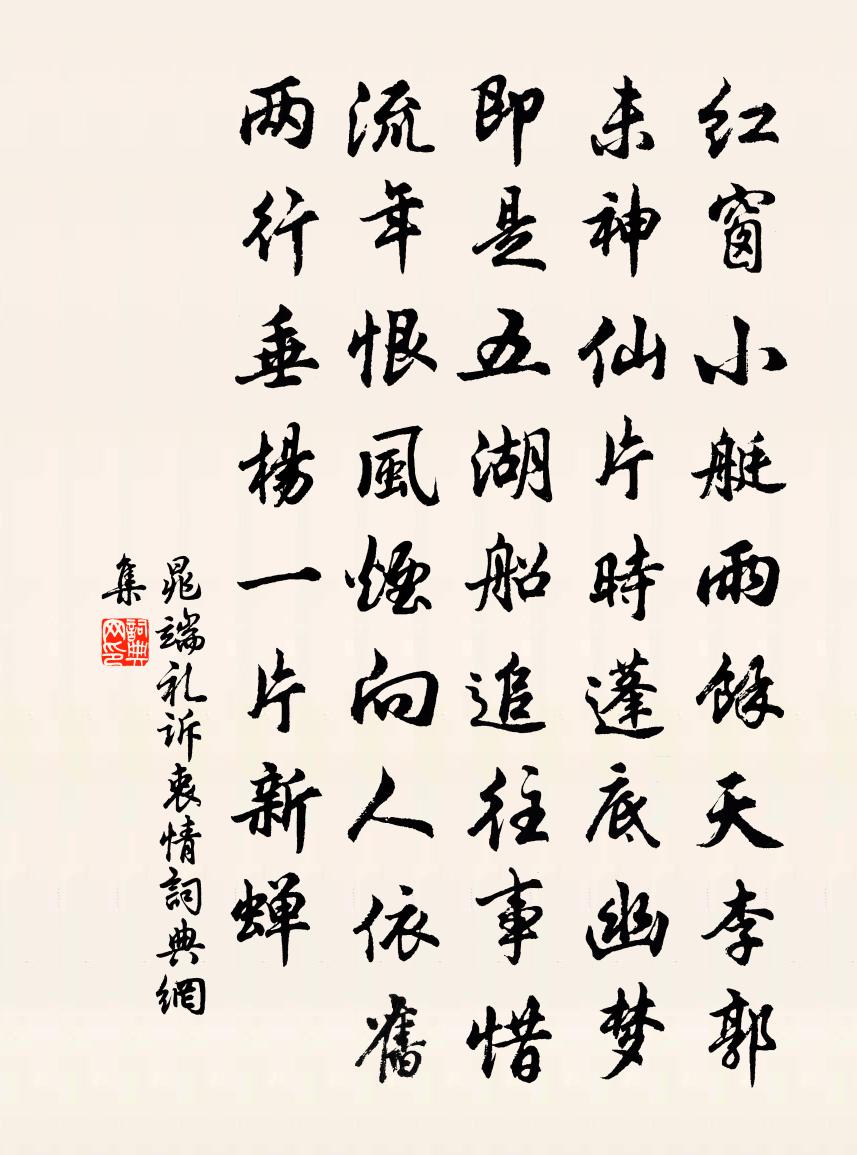 红窗小艇雨馀天李郭
未神仙片时蓬底幽梦
即是五湖船追往事惜
流年恨風煙向人依舊
两行垂楊一片新蝉
晁端礼诉衷情詞典網
集
詞典网印